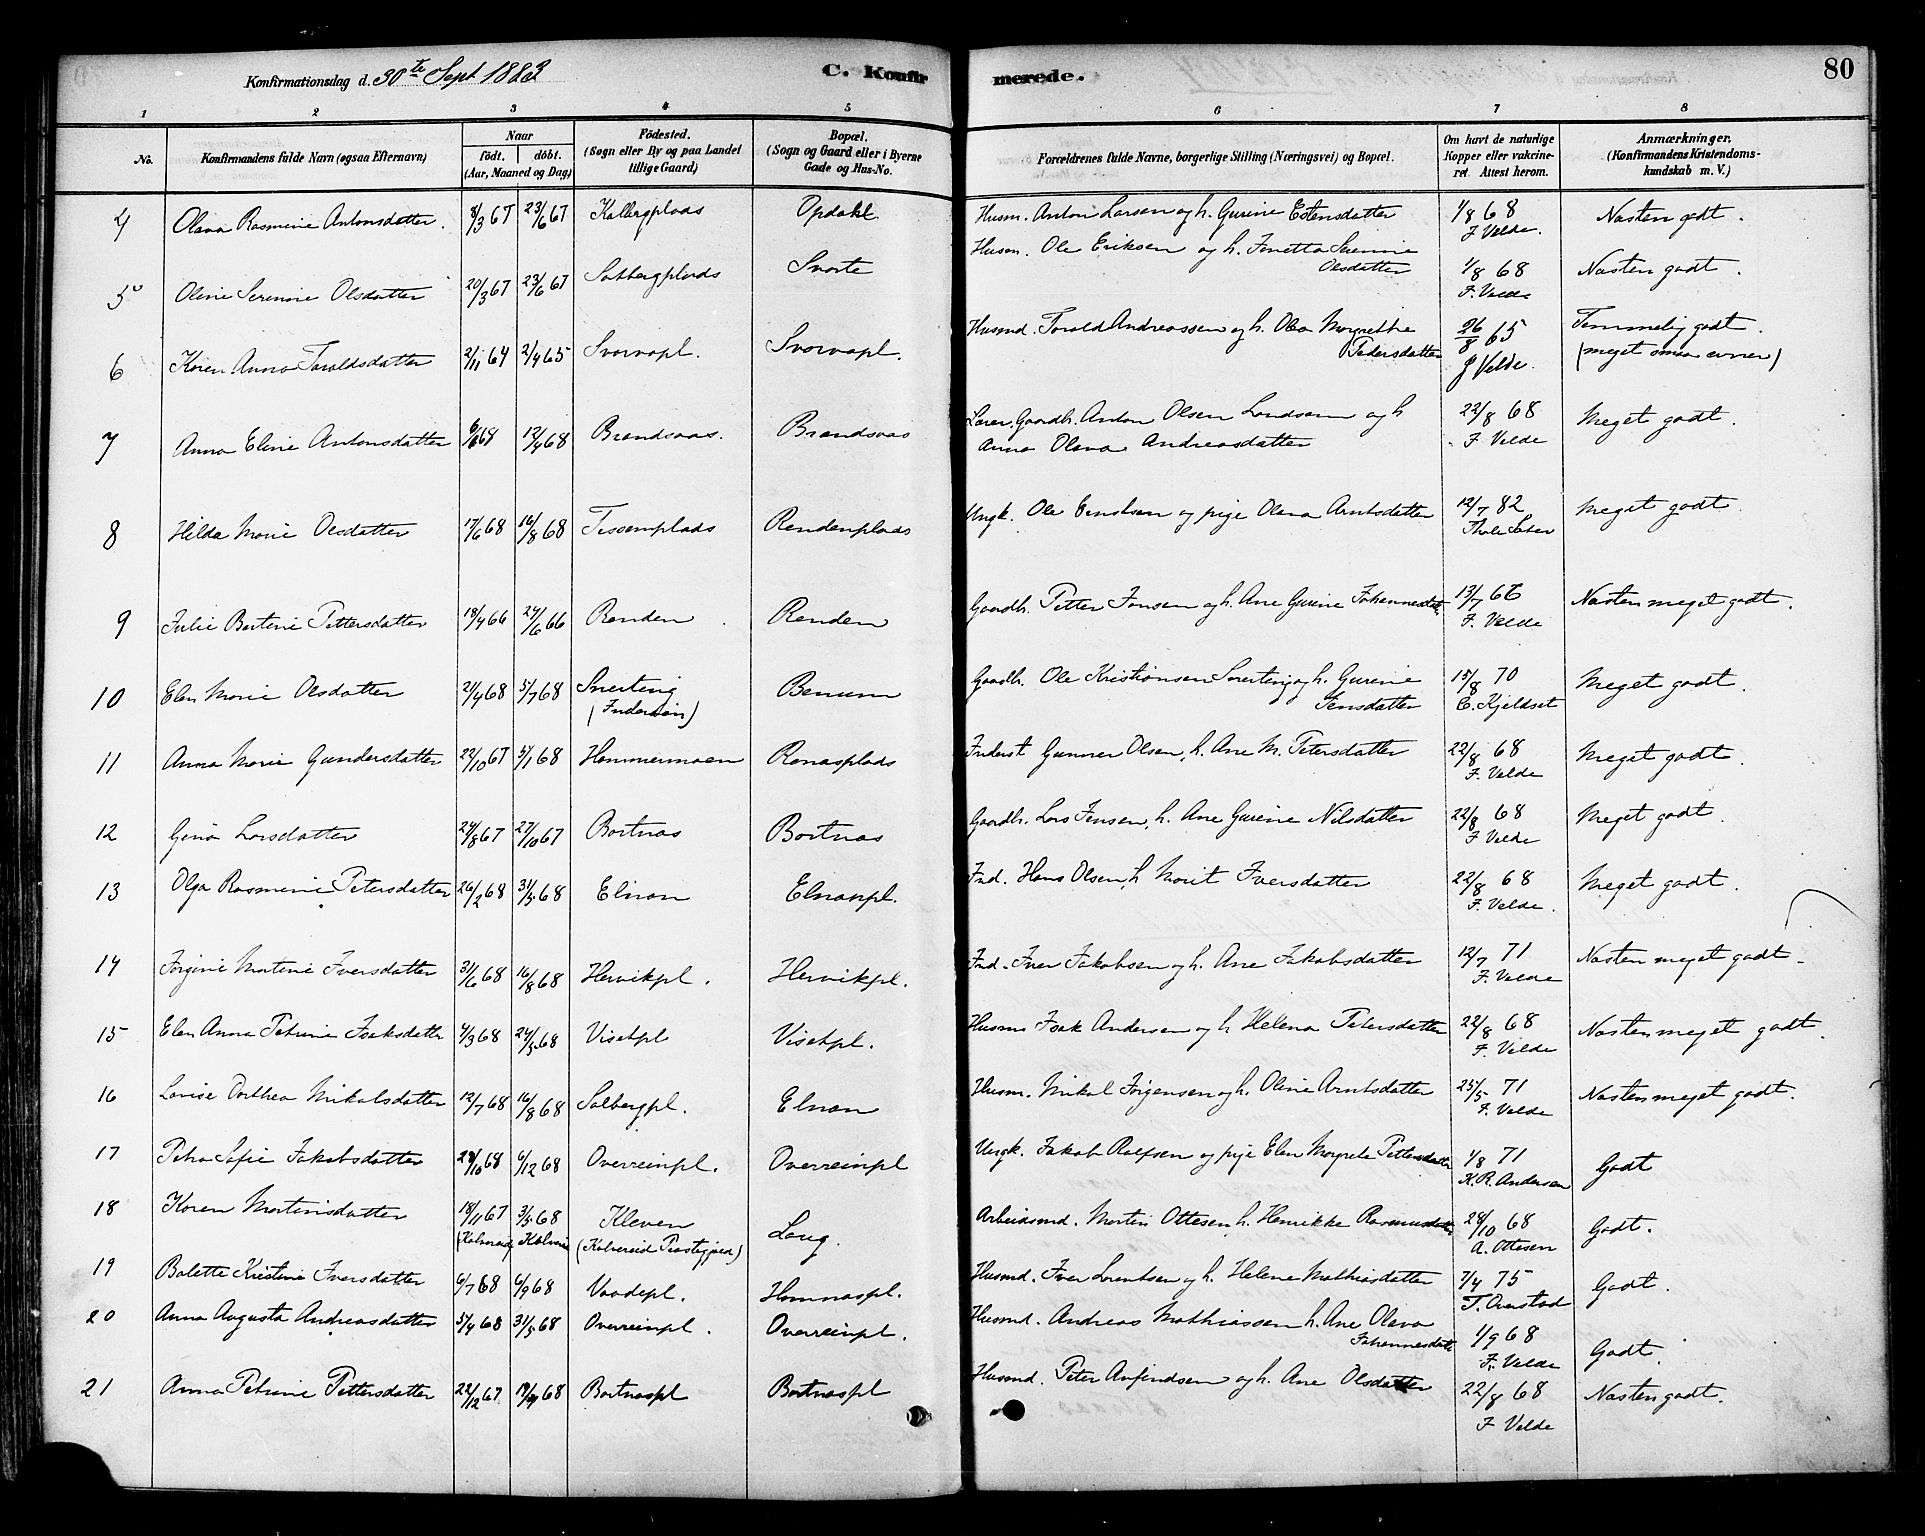 Konfirmationsdag d. 30te Sept 1883
C. Konfirmerede.
80
1 2 3 4 5 6 7 8
No.
Konfirmandens fulde Navn (ogsaa Efternavn)
Naar
födt. döbt.
(Aar, Maaned og Dag)
Födested.
(Sogn eller By og paa Landet
tillige Gaard)
Bopæl.
(Sogn og Gaard eller i Byerne
Gade og Hus-No.
Forældrenes fulde Navne, borgerlige Stilling (Næringsvei) og Bopæl.
Om havt de naturlige
Kopper eller vakcine-
ret. Attest herom.
Anmærkninger,
(Konfirmandens Kristendoms-
kundskab m. V.)
4 Olava Rasmine Antonsdatter. 8/3 67 23/6 67 Opdahl. Husm. Anton Larsen og h. Gurine Estensdatter 1/8 68 Næsten godt.
F Velde.
5 Oline Serenine Olsdatter 20/3 67 23/6 67 Solbergplads Svorte Husm. Ole Eriksen og h.
Olsdatter 1/8 68 Næsten godt.
F. Velde
6 Karen Anna Toraldsdatter 2/11 64 2/4 65 Svarvapl. Svarvapl. Husmd. Torald Andreassen og h. Olava Margrethe
Pedersdatter 26/8 65 Temmelig godt.
F Velde. (meget smaa evner)
7 Anna Eline Antonsdatter 12/4 68 Brandsaas. Brandsaas Lærer. Gaardb. Anton Olsen Landsem og h
Anna Olava Andreasdatter 22/8 68 Meget godt.
F Velde
8 Hilda Marie Olsdatter 17/6 68 16/8 68 Tessemplads Rendenplads Ungk. Ole og pige Olava Arntsdatter 12/7 82 Meget godt.
9 Julie Bertine Pettersdatter 18/4 66 24/6 66 Renden Renden Gaardb. Petter Jonsen og h. Ane Gurine Johannesdat. 13/7 66 Næsten meget godt.
F. Velde
10 Elen Marie Olsdatter 21/4 68 5/7 68 Snerting
(Inderøen) Benum Gaardb. Ole Kristiansen Snerting og h. Gurine
Jensdatter 15/8 70 Meget godt.
C. Kjeldset
11 Anna Marie Gundersdatter 22/10 67 5/1 68 Hammermoen Renaasplads Inderst Gunner Olsen, h. Ane M. Petersdatter 22/8 68 Meget godt.
F. Velde
12 Gina Larsdatter 24/8 67 27/10 67 Bortnas Bortnas Gaardb. Lars Jensen, h. Ane Gurine Nilsdatter 22/8 68 Meget godt.
F Velde
13 Olga Rasmine Petersdatter 26/2 68 31/5 68 Elnan Elnanpl. Ind. Hans Olsen, h Marit Iversdatter 22/8 68 Meget godt.
F. Velde.
14 Jørgine Martine Iversdatter 3/6 68 16/8 68 Hervikpl. Hervikpl. Ind. Iver Jakobsen og h. Ane Jakobsdatter 12/7 71 Næsten meget godt.
F. Velde
15 Elen Anna Petrine Isaksdatter 4/3 68 24/5 68 Visetpl Visetpl. Husm Isak Andersen og h Helena Petersdatter 22/8 68 Næsten meget godt.
F. Velde
16 Lovise Dorthea Mikalsdatter 12/7 68 16/8 68 Solbergpl. Elnan Husm. Mikal Jørgensen og h. Oline Arntsdatter 25/5 71 Næsten meget godt.
F. Velde
17 Petra Sofie Jakobsdatter 6/12 68 Overreinpl. Overreinpl Ungk. Jakob Rolfsen og pige Elen Margrete Pettersdatter 1/8 71 Godt
K. R. Andersen
18 Karen Martinsdatter 18/11 67 3/5 68 Kleven
(Kolvereid Præstegjeld) Laug. Arbeidsmd. Martin Ottesen, h. Henrikke Rasmusdatter 28/10 68 Godt.
A. Ottesen
19 Balette Kristine Iversdatter 6/7 68 6/9 68 Vaadepl. Hamnaspl. Husmd. Iver Lorentsen og h. Helene Mathiasdatter 7/4 75 Godt.
T. Overstad
20 Anna Augusta Andreasdatter 5/4 68 31/5 68 Overreinpl. Overreinpl. Husmd. Andreas Mathiassen h. Ane Olava
Johannesdatt 1/9 68 Godt.
F. Velde
21 Anna Petrine Pettersdatter 22/12 67 Bortnaspl Bortnaspl Husmd. Peter Anfindsen og h. Ane Olsdatter 22/8 68 Næsten godt.
F Velde